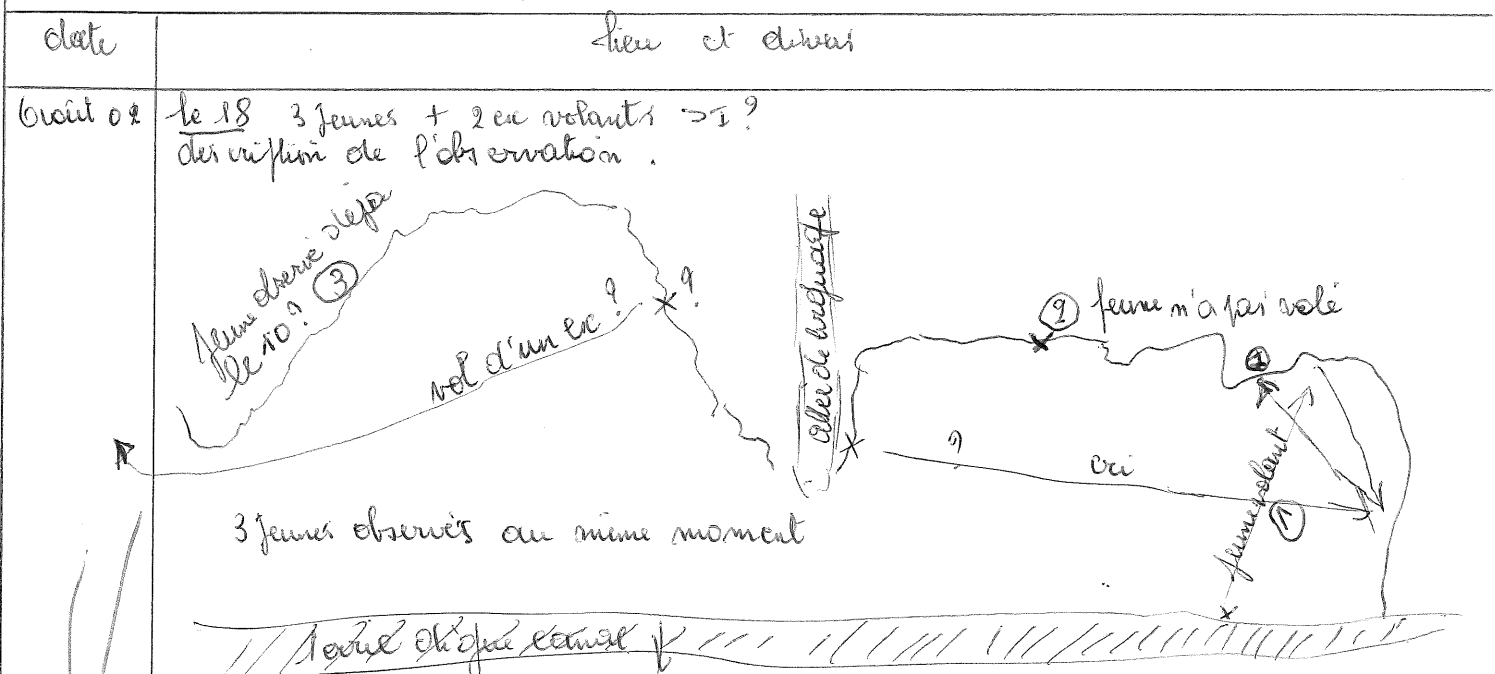 date
lieu et divers
Août 02
le 18 3 Jeunes + 2 ex volants >I ?
description de l'observation.
Jeune observé déjà
le 10 ? 3
vol d'un ex ?
?
allée de
2 Jeune n'a pas volé
1
?
cri
1
Jeune volant
3 Jeunes observés au même moment
digue canal